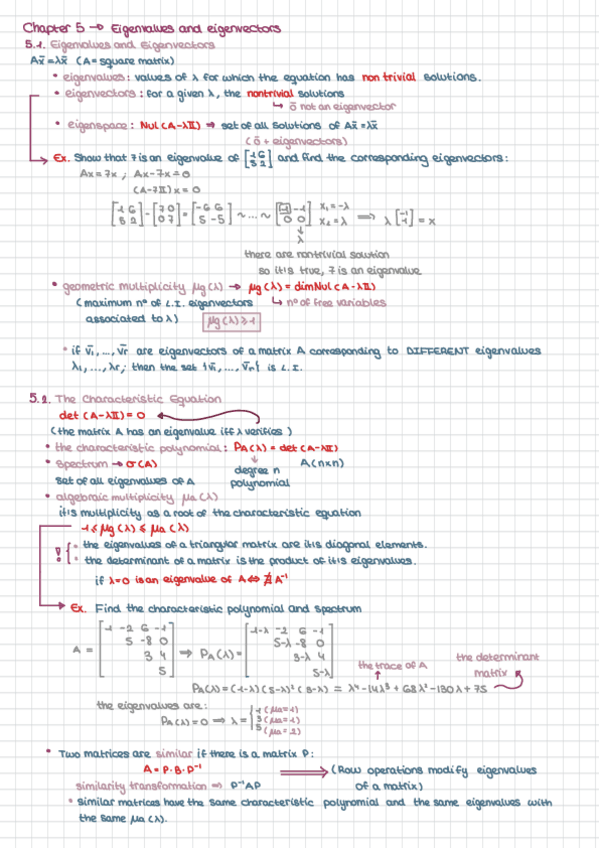 Chapter 5 → Eigenvalues and eigenvectors
5.1. Eigenvalues and Eigenvectors
Ax̄=λx̄ (A= square matrix)
• eigenvalues: values of λ for which the equation has non trivial solutions.
• eigenvectors: for a given λ, the nontrivial solutions
↳ ō not an eigenvector
• eigenspace: Nul(A-λII) ⇒ set of all solutions of Ax̄=λx̄
(ō + eigenvectors)
Ex. Show that 7 is an eigenvalue of [1 6; 5 2] and find the corresponding eigenvectors:
Ax=7x ; Ax-7x=0
(A-7II)x=0
[1 6; 5 2] - [7 0; 0 7] = [-6 6; 5 -5] ~ ... ~ [1 -1; 0 0] x₁=λ x₂=λ ⇒ λ[1; 1] = x
↓
λ
there are nontrivial solution
so it is true, 7 is an eigenvalue
• geometric multiplicity μg(λ) → μg(λ) = dimNul(A-λII)
(maximum nº of L.I. eigenvectors ↳ nº of free variables
associated to λ) μg(λ)≥1
• if v̄₁,...,v̄r are eigenvectors of a matrix A corresponding to DIFFERENT eigenvalues
λ₁,...,λr; then the set {v̄₁,...,v̄r} is L.I.
5.2. The Characteristic Equation
det(A-λII)=0
(the matrix A has an eigenvalue iff λ verifies)
• the characteristic polynomial: PA(λ) = det(A-λII)
• spectrum → σ(A) degree n A(nxn)
set of all eigenvalues of A polynomial
• algebraic multiplicity μa(λ)
it is multiplicity as a root of the characteristic equation
1≤μg(λ)≤μa(λ)
! - the eigenvalues of a triangular matrix are it is diagonal elements.
- the determinant of a matrix is the product of it is eigenvalues.
if λ=0 is an eigenvalue of A⇔∄A⁻¹
Ex. Find the characteristic polynomial and spectrum
A = [1 -2 6 -1; 5 -8 0; 3 4; 5] ⇒ PA(λ)= [1-λ -2 6 -1; 5-λ -8 0; 3-λ 4; 5-λ]
the trace of A the determinant
matrix
PA(λ)=(1-λ)(5-λ)²(3-λ) = λ⁴-14λ³+68λ²-130λ+75
the eigenvalues are:
PA(λ)=0 ⇒ λ= {1 (μa=1) 3 (μa=1) 5 (μa=2)
• Two matrices are similar if there is a matrix P:
A=P·B·P⁻¹ ⇒ (Row operations modify eigenvalues
similarity transformation ⇒ P⁻¹AP of a matrix)
• similar matrices have the same characteristic polynomial and the same eigenvalues with
the same μa(λ).